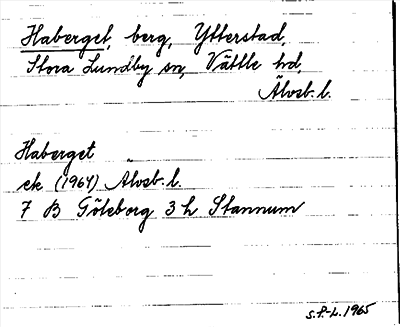 Haberget, berg, Ytterstad,
Stora Lundby sn, Vättle hd,
Älvsb. l.
Haberget
ek (1964) Älvsb. l.
7 B Göteborg 3 h Stannum
S.F.-L. 1965